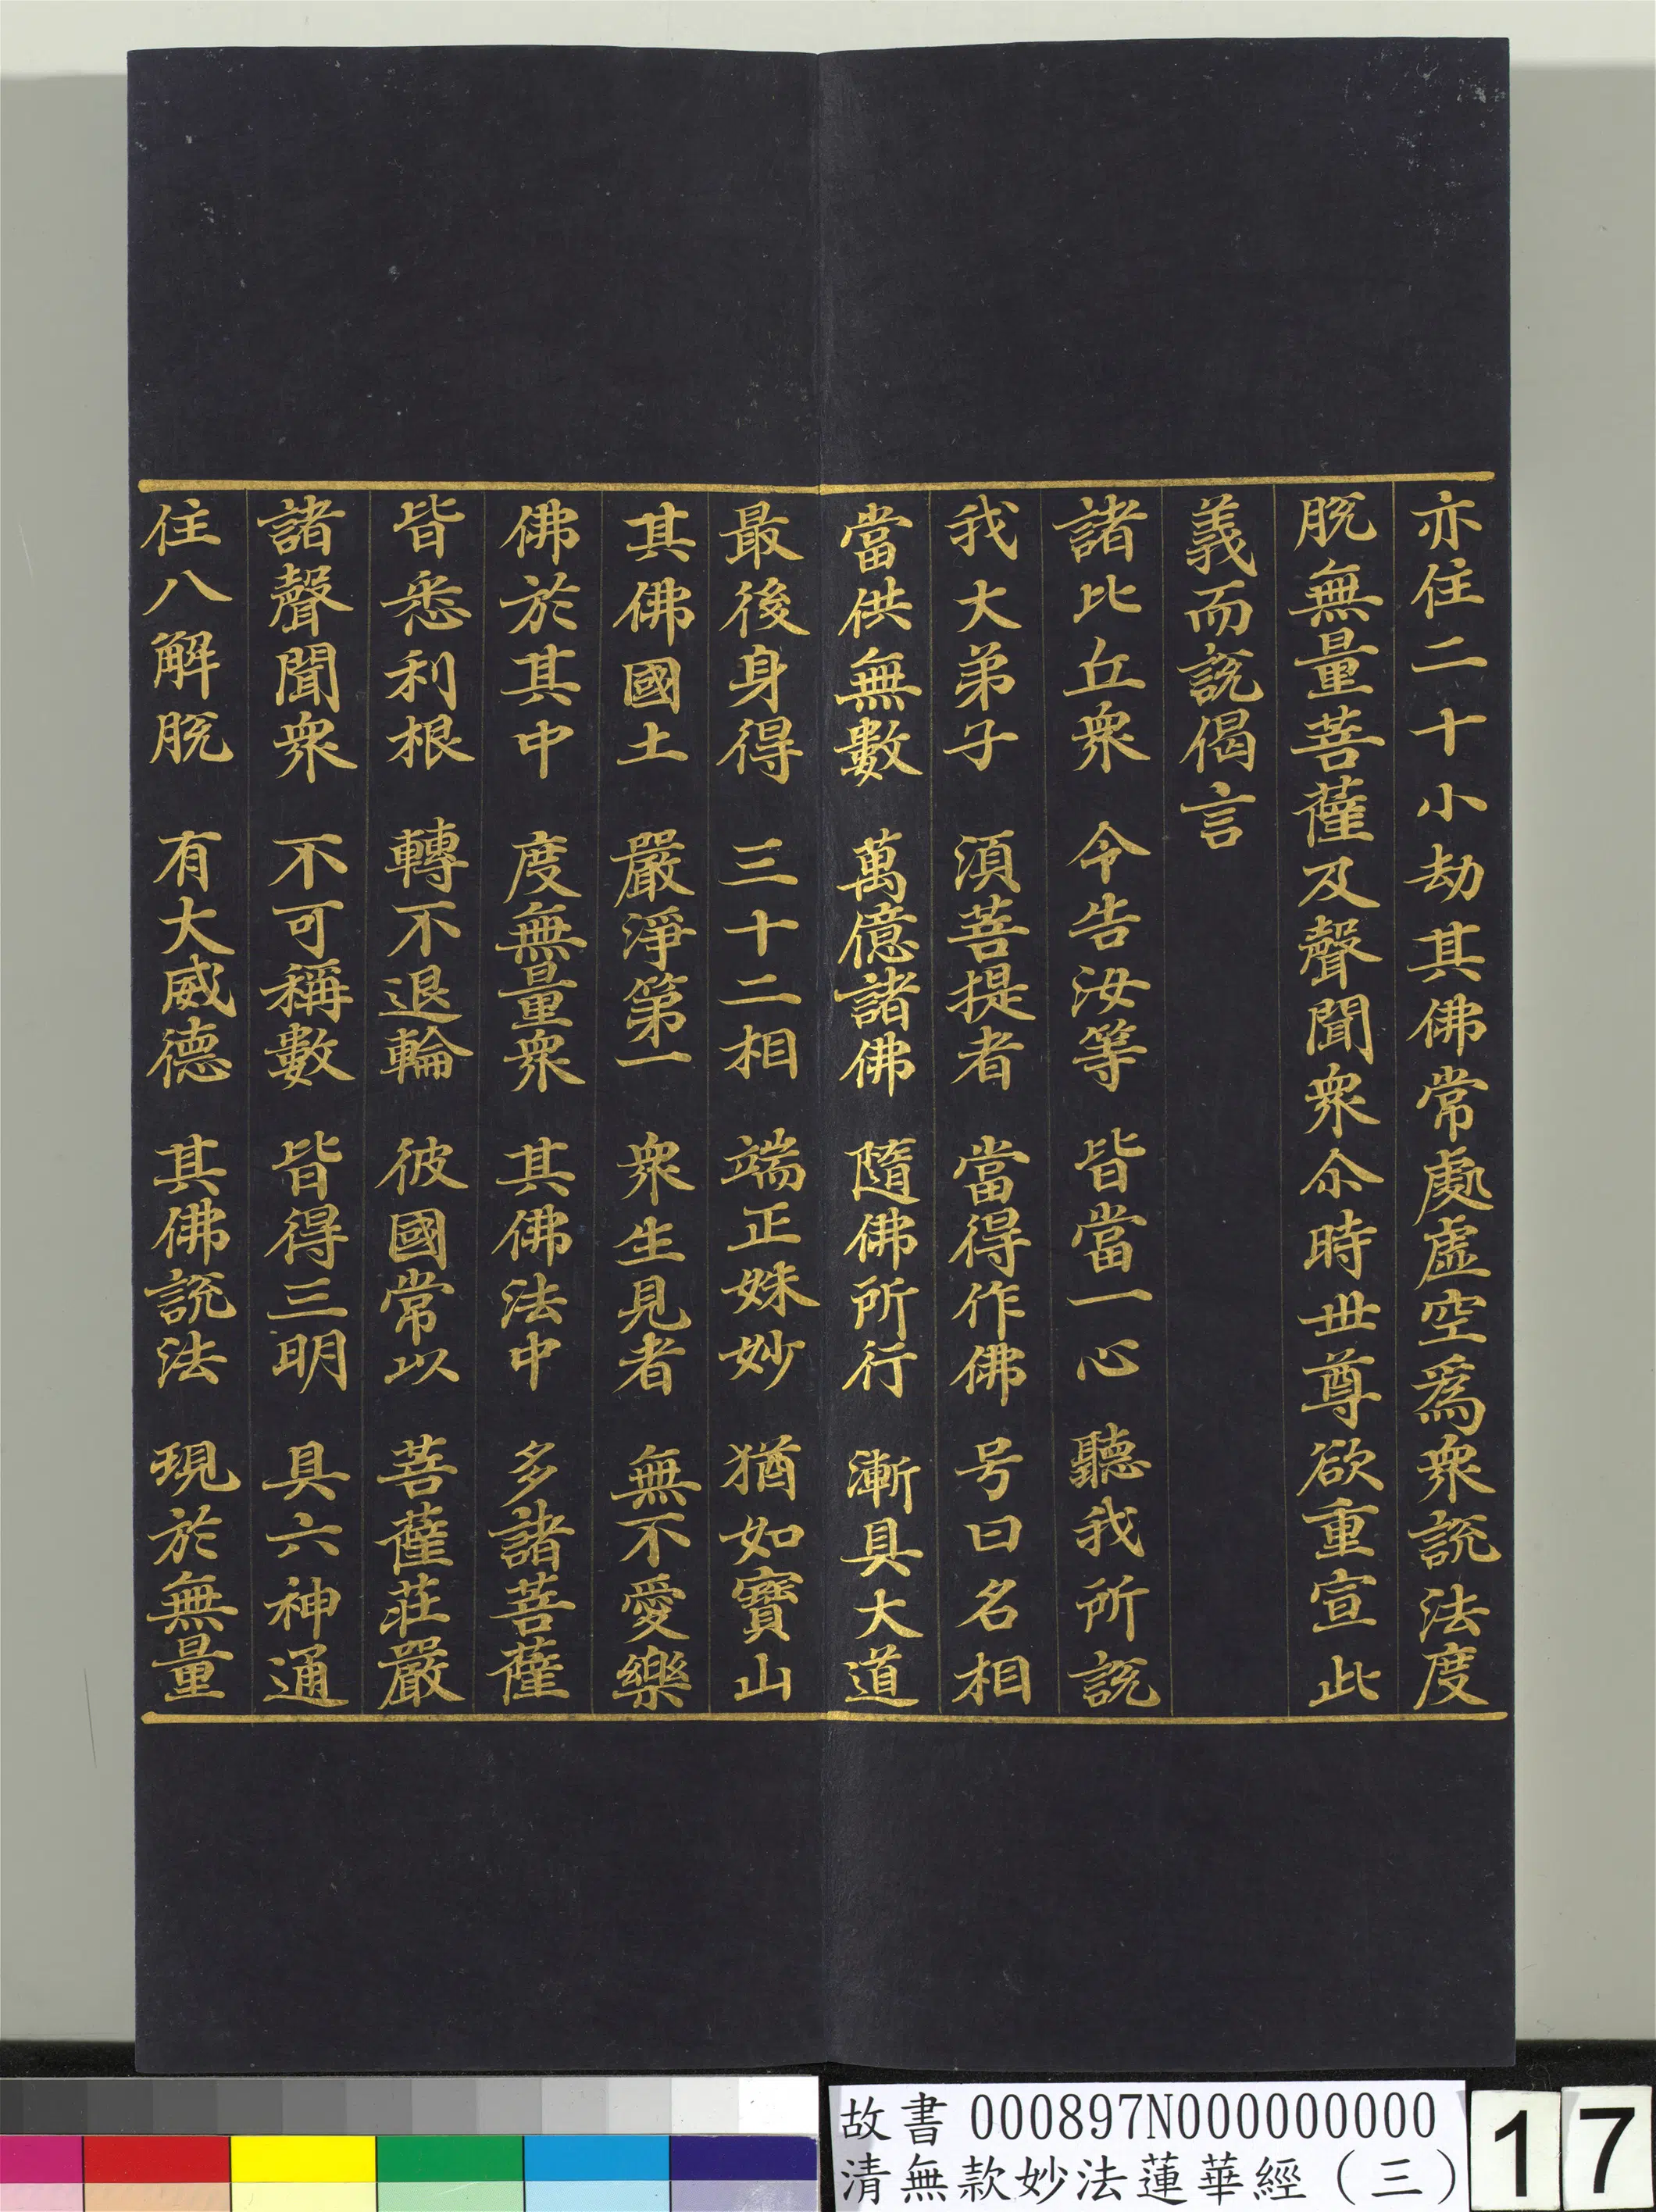 亦住二十小劫其佛常處虛空爲衆說法度
脫無量菩薩及聲聞衆尒時世尊欲重宣此
義而說偈言
諸比丘衆　今告汝等　皆當一心　聽我所說
我大弟子　須菩提者　當得作佛　号曰名相
當供無數　萬億諸佛　隨佛所行　漸具大道
最後身得　三十二相　端正姝妙　猶如寶山
其佛國土　嚴淨第一　衆生見者　無不愛樂
佛於其中　度無量衆　其佛法中　多諸菩薩
皆悉利根　轉不退輪　彼國常以　菩薩莊嚴
諸聲聞衆　不可稱數　皆得三明　具六神通
住八解脫　有大威德　其佛說法　現於無量
故書000897N000000000
清無款妙法蓮華經（三）
17